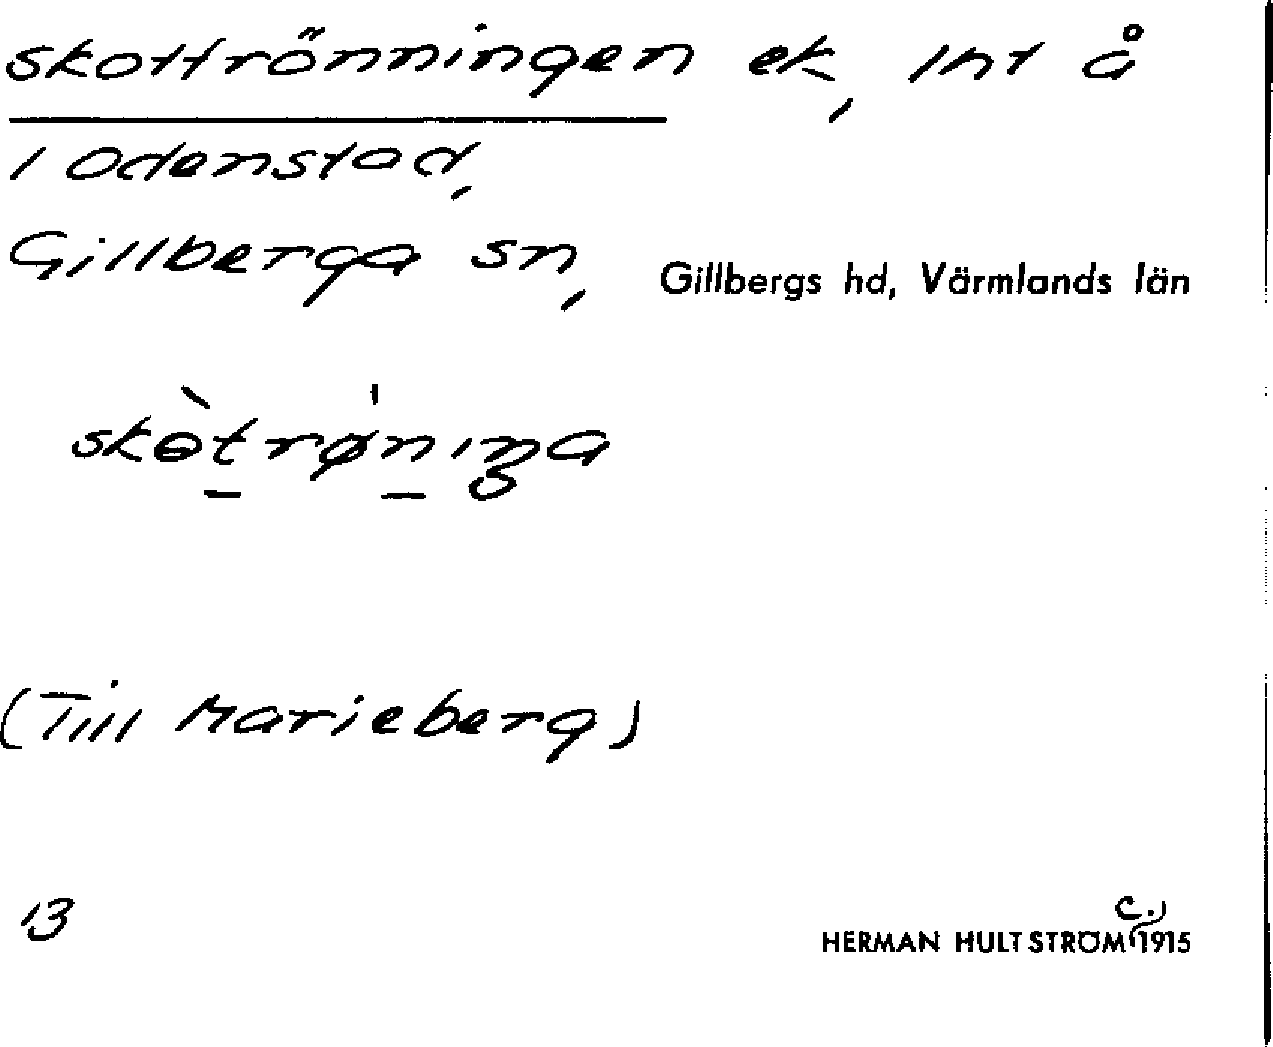 skottrönningen ek, int å
i Odenstad,
Gillberga sn, Gillbergs hd, Värmlands län
skɵ̀t̠rø̨n̠ıŋa
(Till Marieberg)
13
HERMAN HULTSTRÖM c. 1915